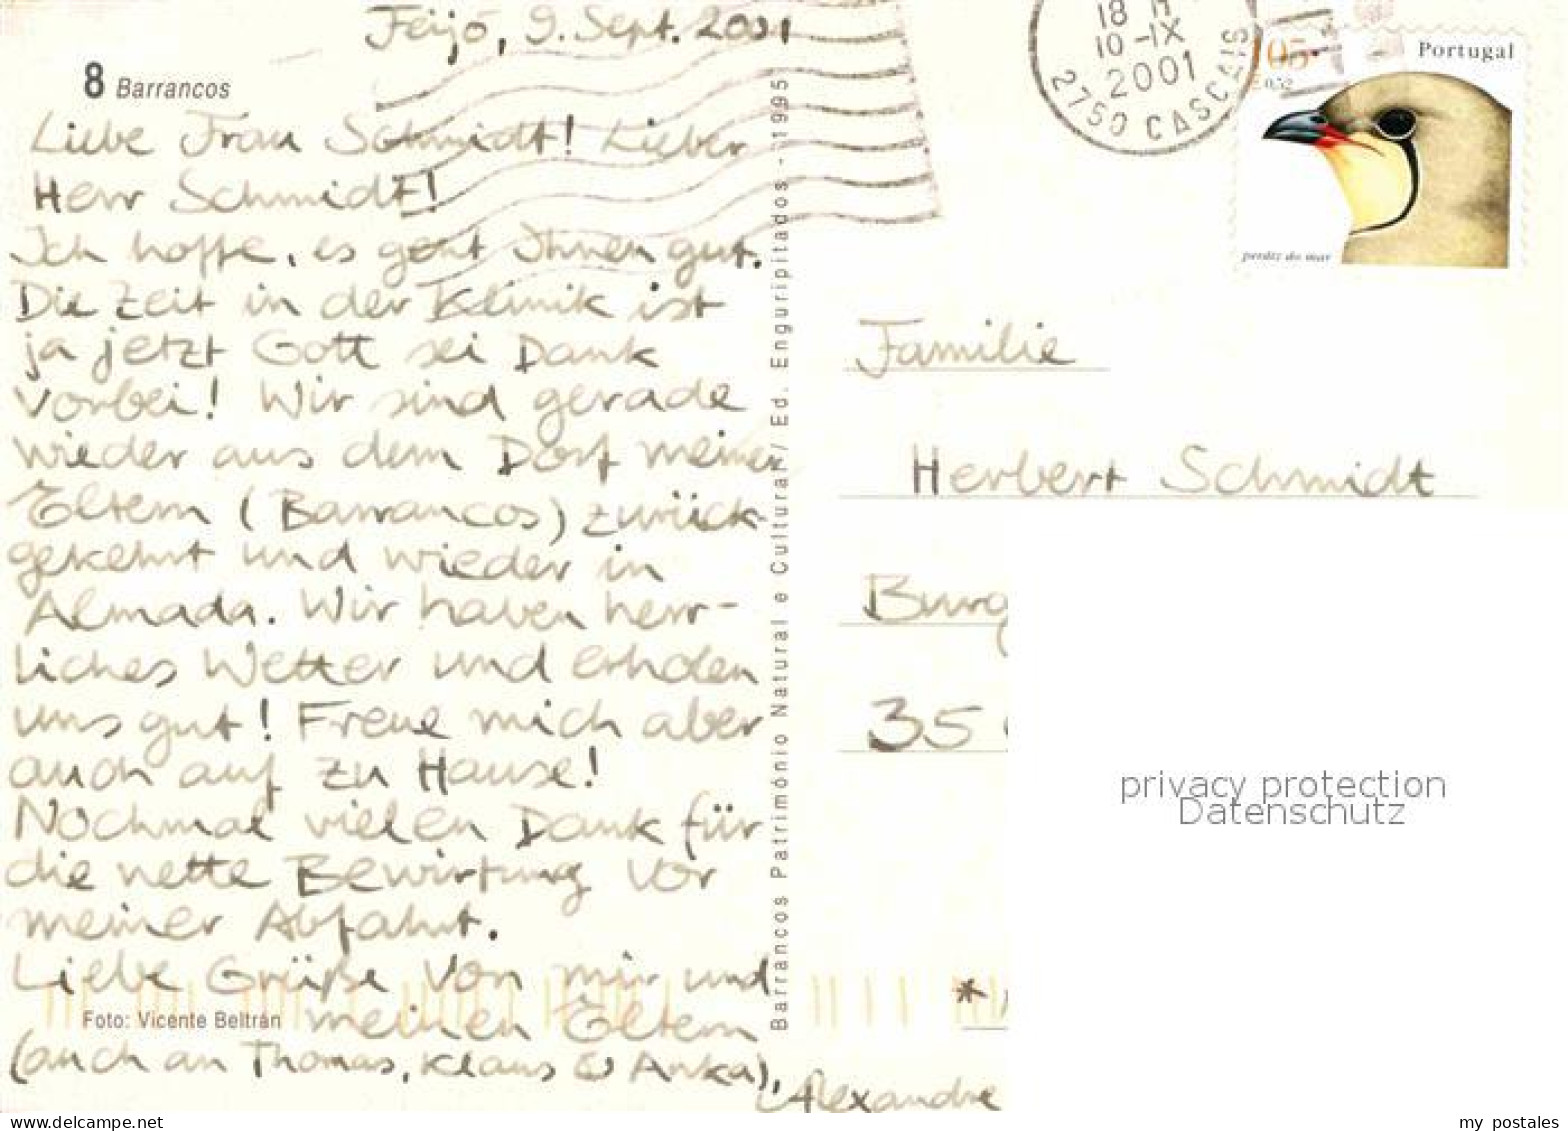 Feijó, 9. Sept. 2001
8 Barrancos
Liebe Frau Schmidt! Lieber
Herr Schmidt!
Ich hoffe, es geht Ihnen gut.
Die Zeit in der Klinik ist
ja jetzt Gott sei Dank
vorbei! Wir sind gerade
wieder aus dem Dorf meiner
Eltern (Barrancos) zurück-
gekehrt und wieder in
Almada. Wir haben herr-
liches Wetter und erholen
uns gut! Freue mich aber
auch auf zu Hause!
Nochmal vielen Dank für
die nette Bewirtung vor
meiner Abfahrt.
Liebe Grüße von mir und
Foto: Vicente Beltrán
meinen Eltern
(auch an Thomas, Klaus & Anka),
Alexandre
Barrancos Património Natural e Cultural / Ed. Enguripitados - 1995
18 H
10-IX
2001
2750 CASCAIS
Portugal
perdiz do mar
Familie
Herbert Schmidt
Burg
35
*
privacy protection
Datenschutz
my postales